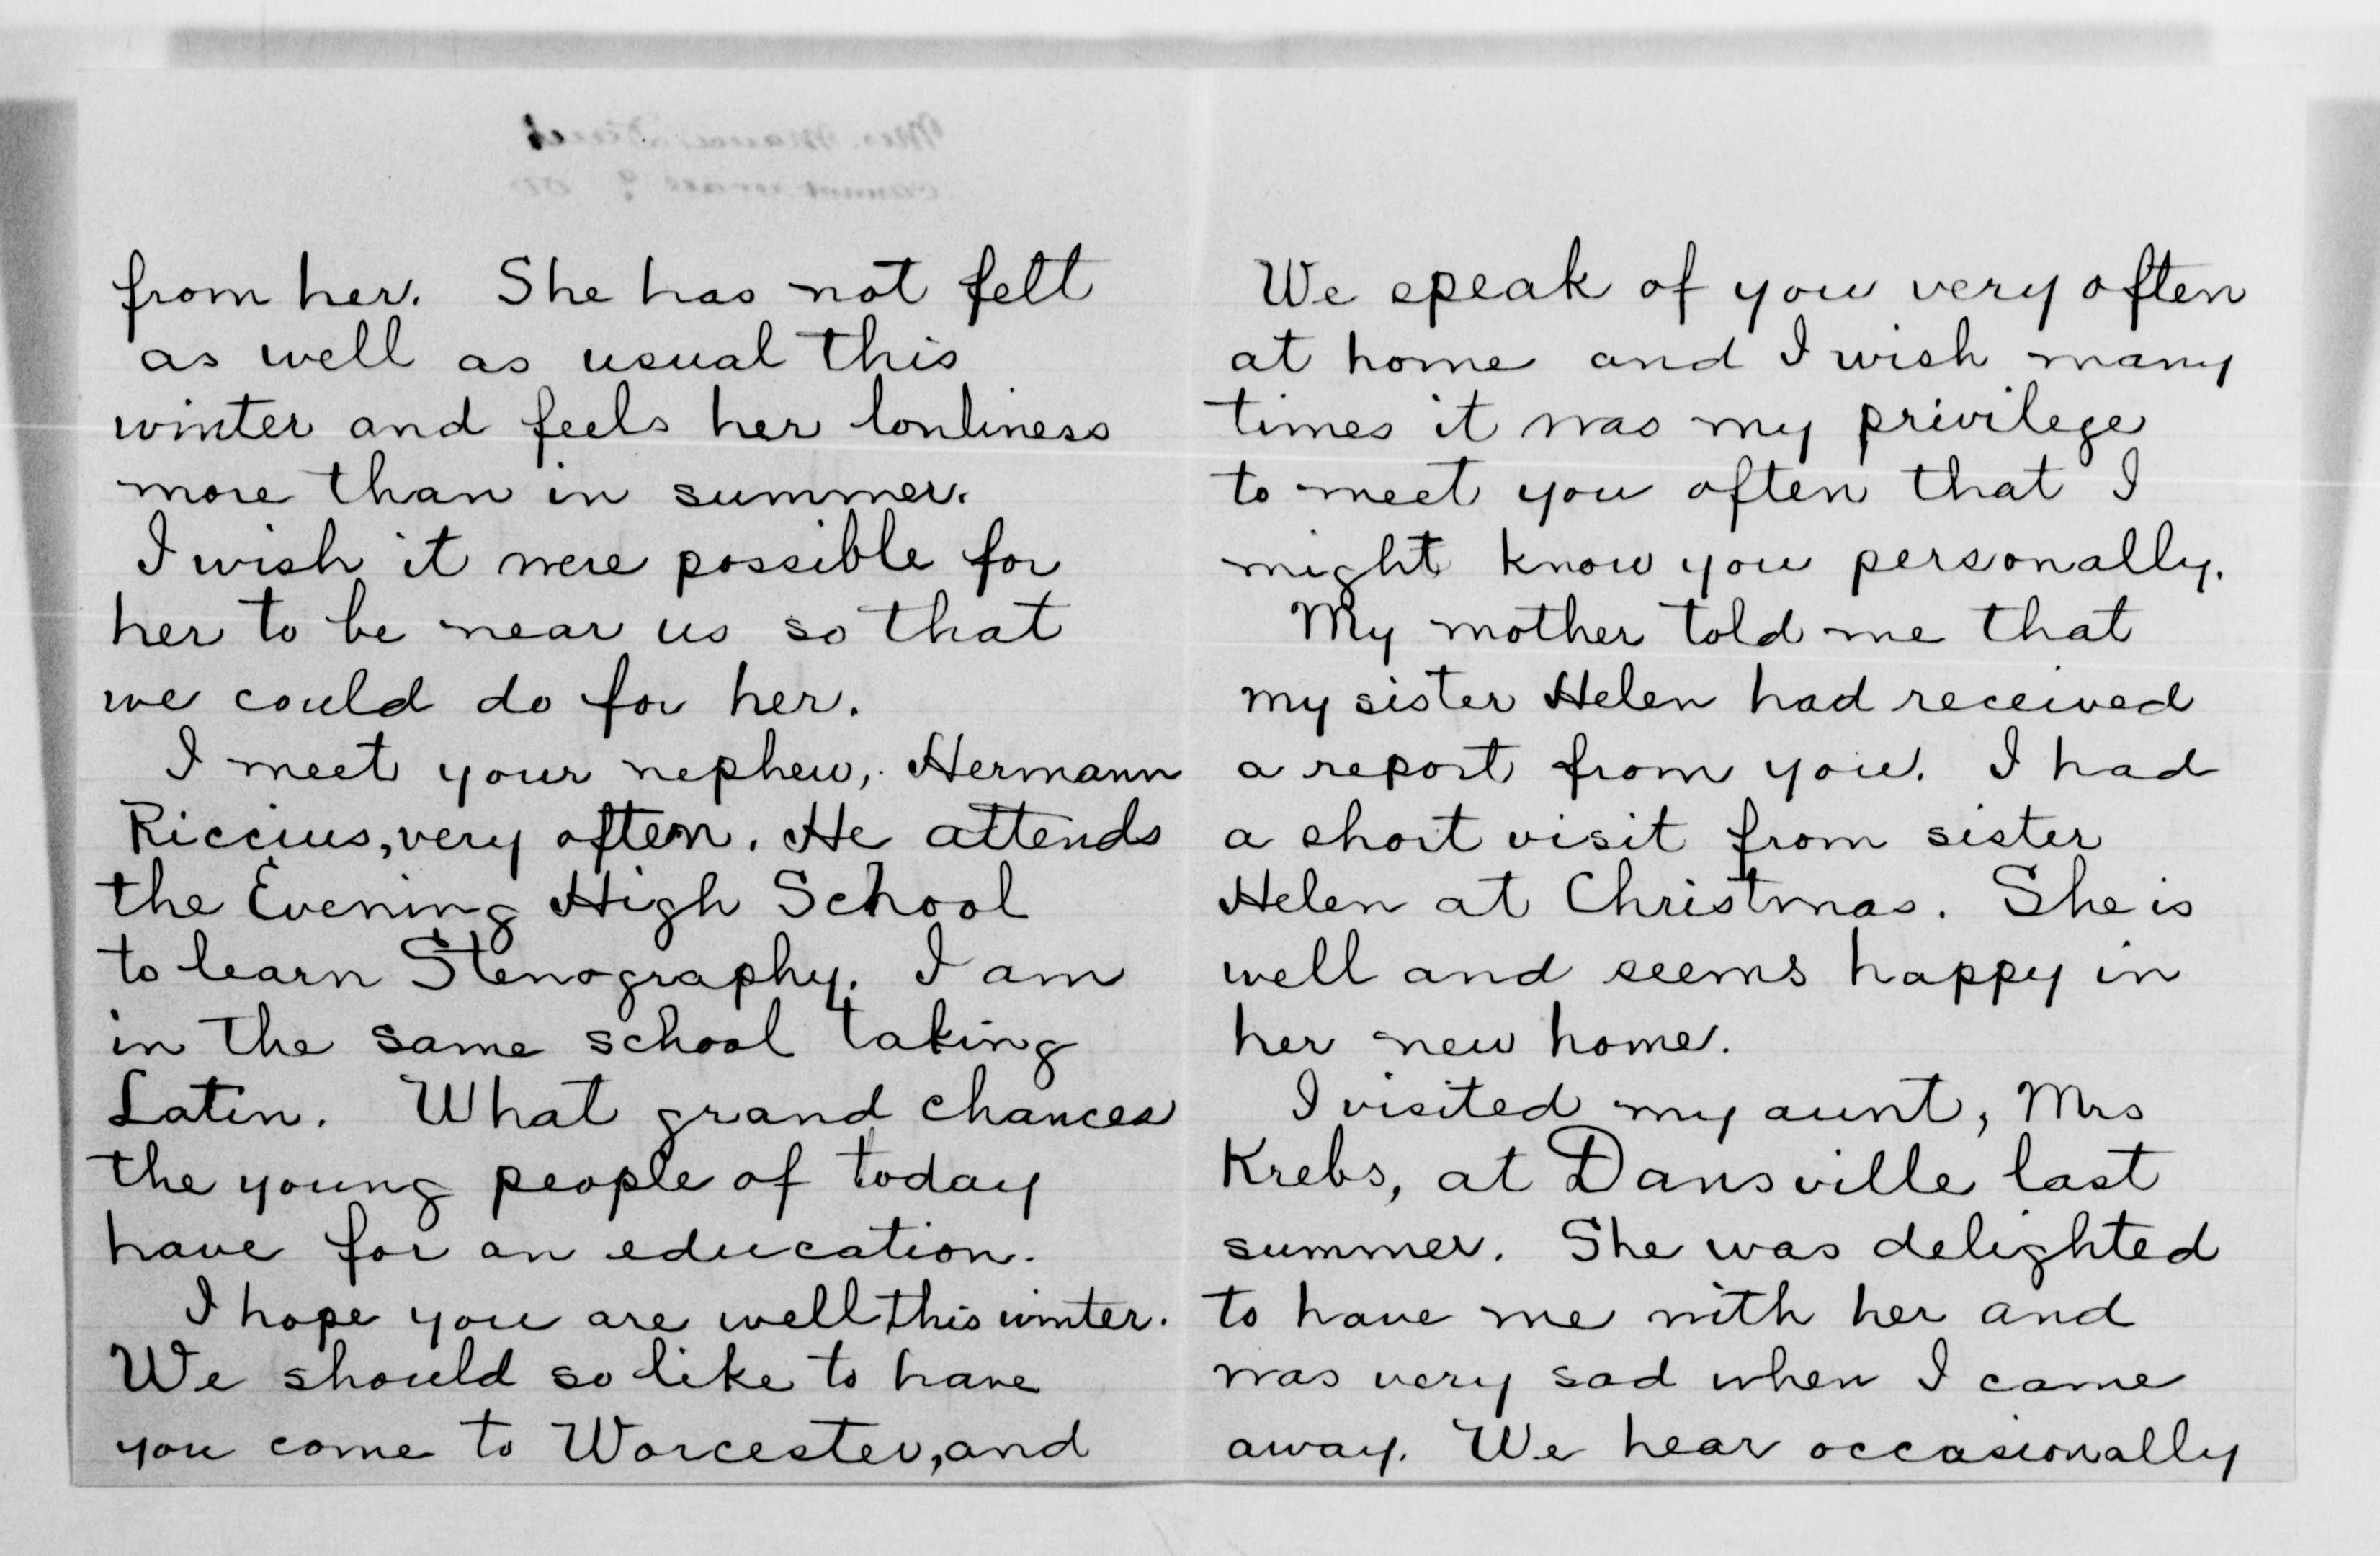 from her. She has not felt
as well as usual this
winter and feels her lonliness
more than in summer.
I wish it were possible for
her to be near us so that
we could do for her.
I meet your nephew, Hermann
Riccius, very often. He attends
the Evening High School
to learn Stenography. I am
in the same school taking
Latin. What grand chances
the young people of today
have for an education.
I hope you are well this winter.
We should so like to have
you come to Worcester, and
We speak of you very often
at home and I wish many
times it was my privilege
to meet you often that I
might know you personally.
My mother told me that
my sister Helen had received
a report from you. I had
a short visit from sister
Helen at Christmas. She is
well and seems happy in
her new home.
I visited my aunt, Mrs
Krebs, at Dansville last
summer. She was delighted
to have me with her and
was very sad when I came
away. We hear occasionally